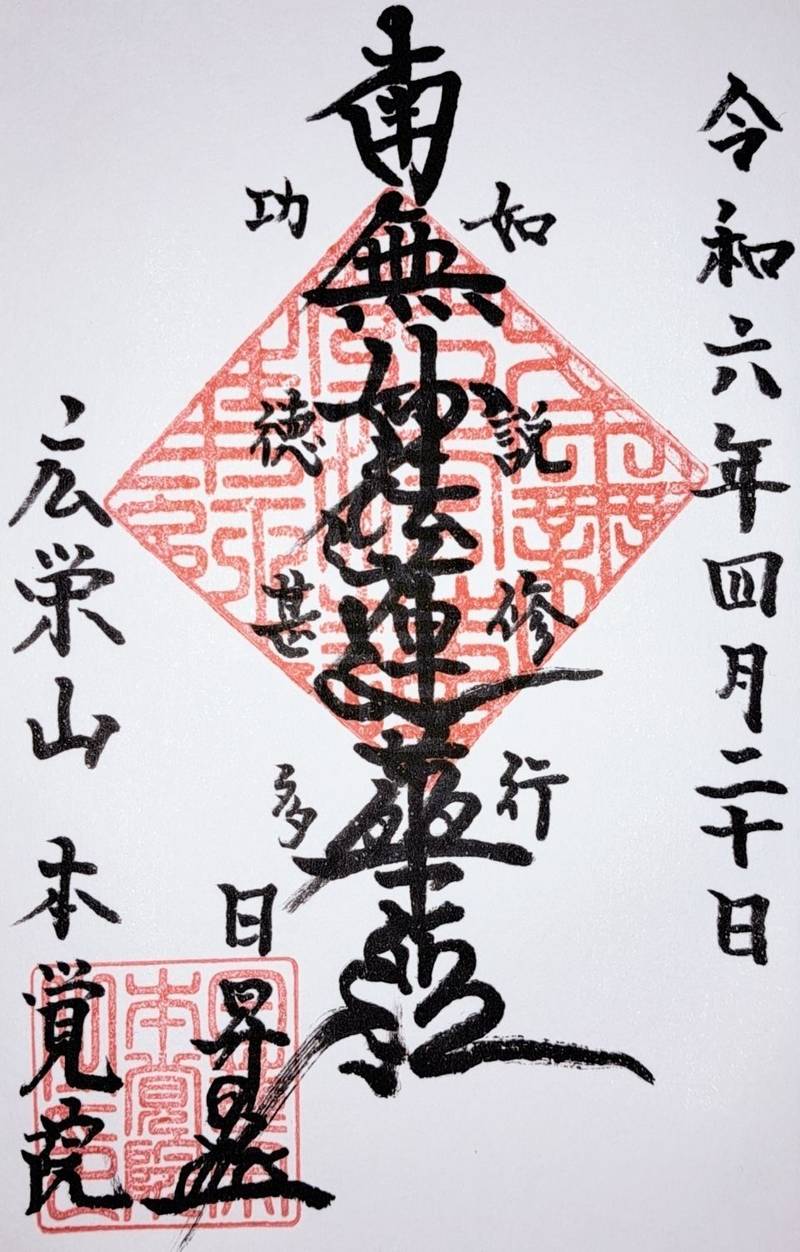 令和六年四月二十日
如説修行
南無妙法蓮華経
功徳甚多
日昇
広栄山 本覚院